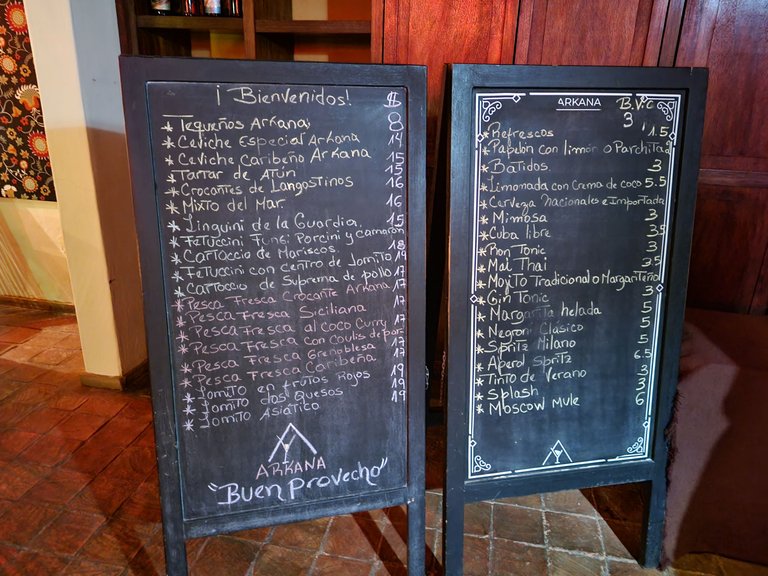 ¡Bienvenidos! $
* Tequeños Arkana 8
* Ceviche Especial Arkana 14
* Ceviche Caribeño Arkana 15
* Tartar de Atún 15
* Crocantes de Langostinos 16
* Mixto del Mar 16
* Linguini de la Guardia 15
* Fetuccini Fungi Porcini y Camarón
* Cartoccio de Mariscos 18
* Fetuccini con centro de Lomito 19
* Cartoccio de Suprema de pollo 17
* Pesca Fresca Crocante Arkana 17
* Pesca Fresca Siciliana 17
* Pesca Fresca al coco Curry 17
* Pesca Fresca con Coulis de
* Pesca Fresca Grenoblesa 17
* Pesca Fresca Caribeña 17
* Lomito en frutos Rojos 19
* Lomito dos Quesos 19
* Lomito Asiatico 19
ARKANA
"Buen provecho"
ARKANA B.V.C
3
* Refrescos 1.5
* Papelón con limón o Parchita
* Batidos 3
* Limonada con Crema de coco 5.5
* Cerveza Nacionales e Importada
* Mimosa 3
* Cuba libre 3.5
* Ron Tonic 3
* Mai Thai 3.5
* Mojito Tradicional o Margariteño
* Gin Tonic 3
* Margarita helada 5
* Negroni Clásico 5
* Spritz Milano 5
* Aperol Spritz 6.5
* Tinto de Verano 3
* Splash 3
* Moscow Mule 6